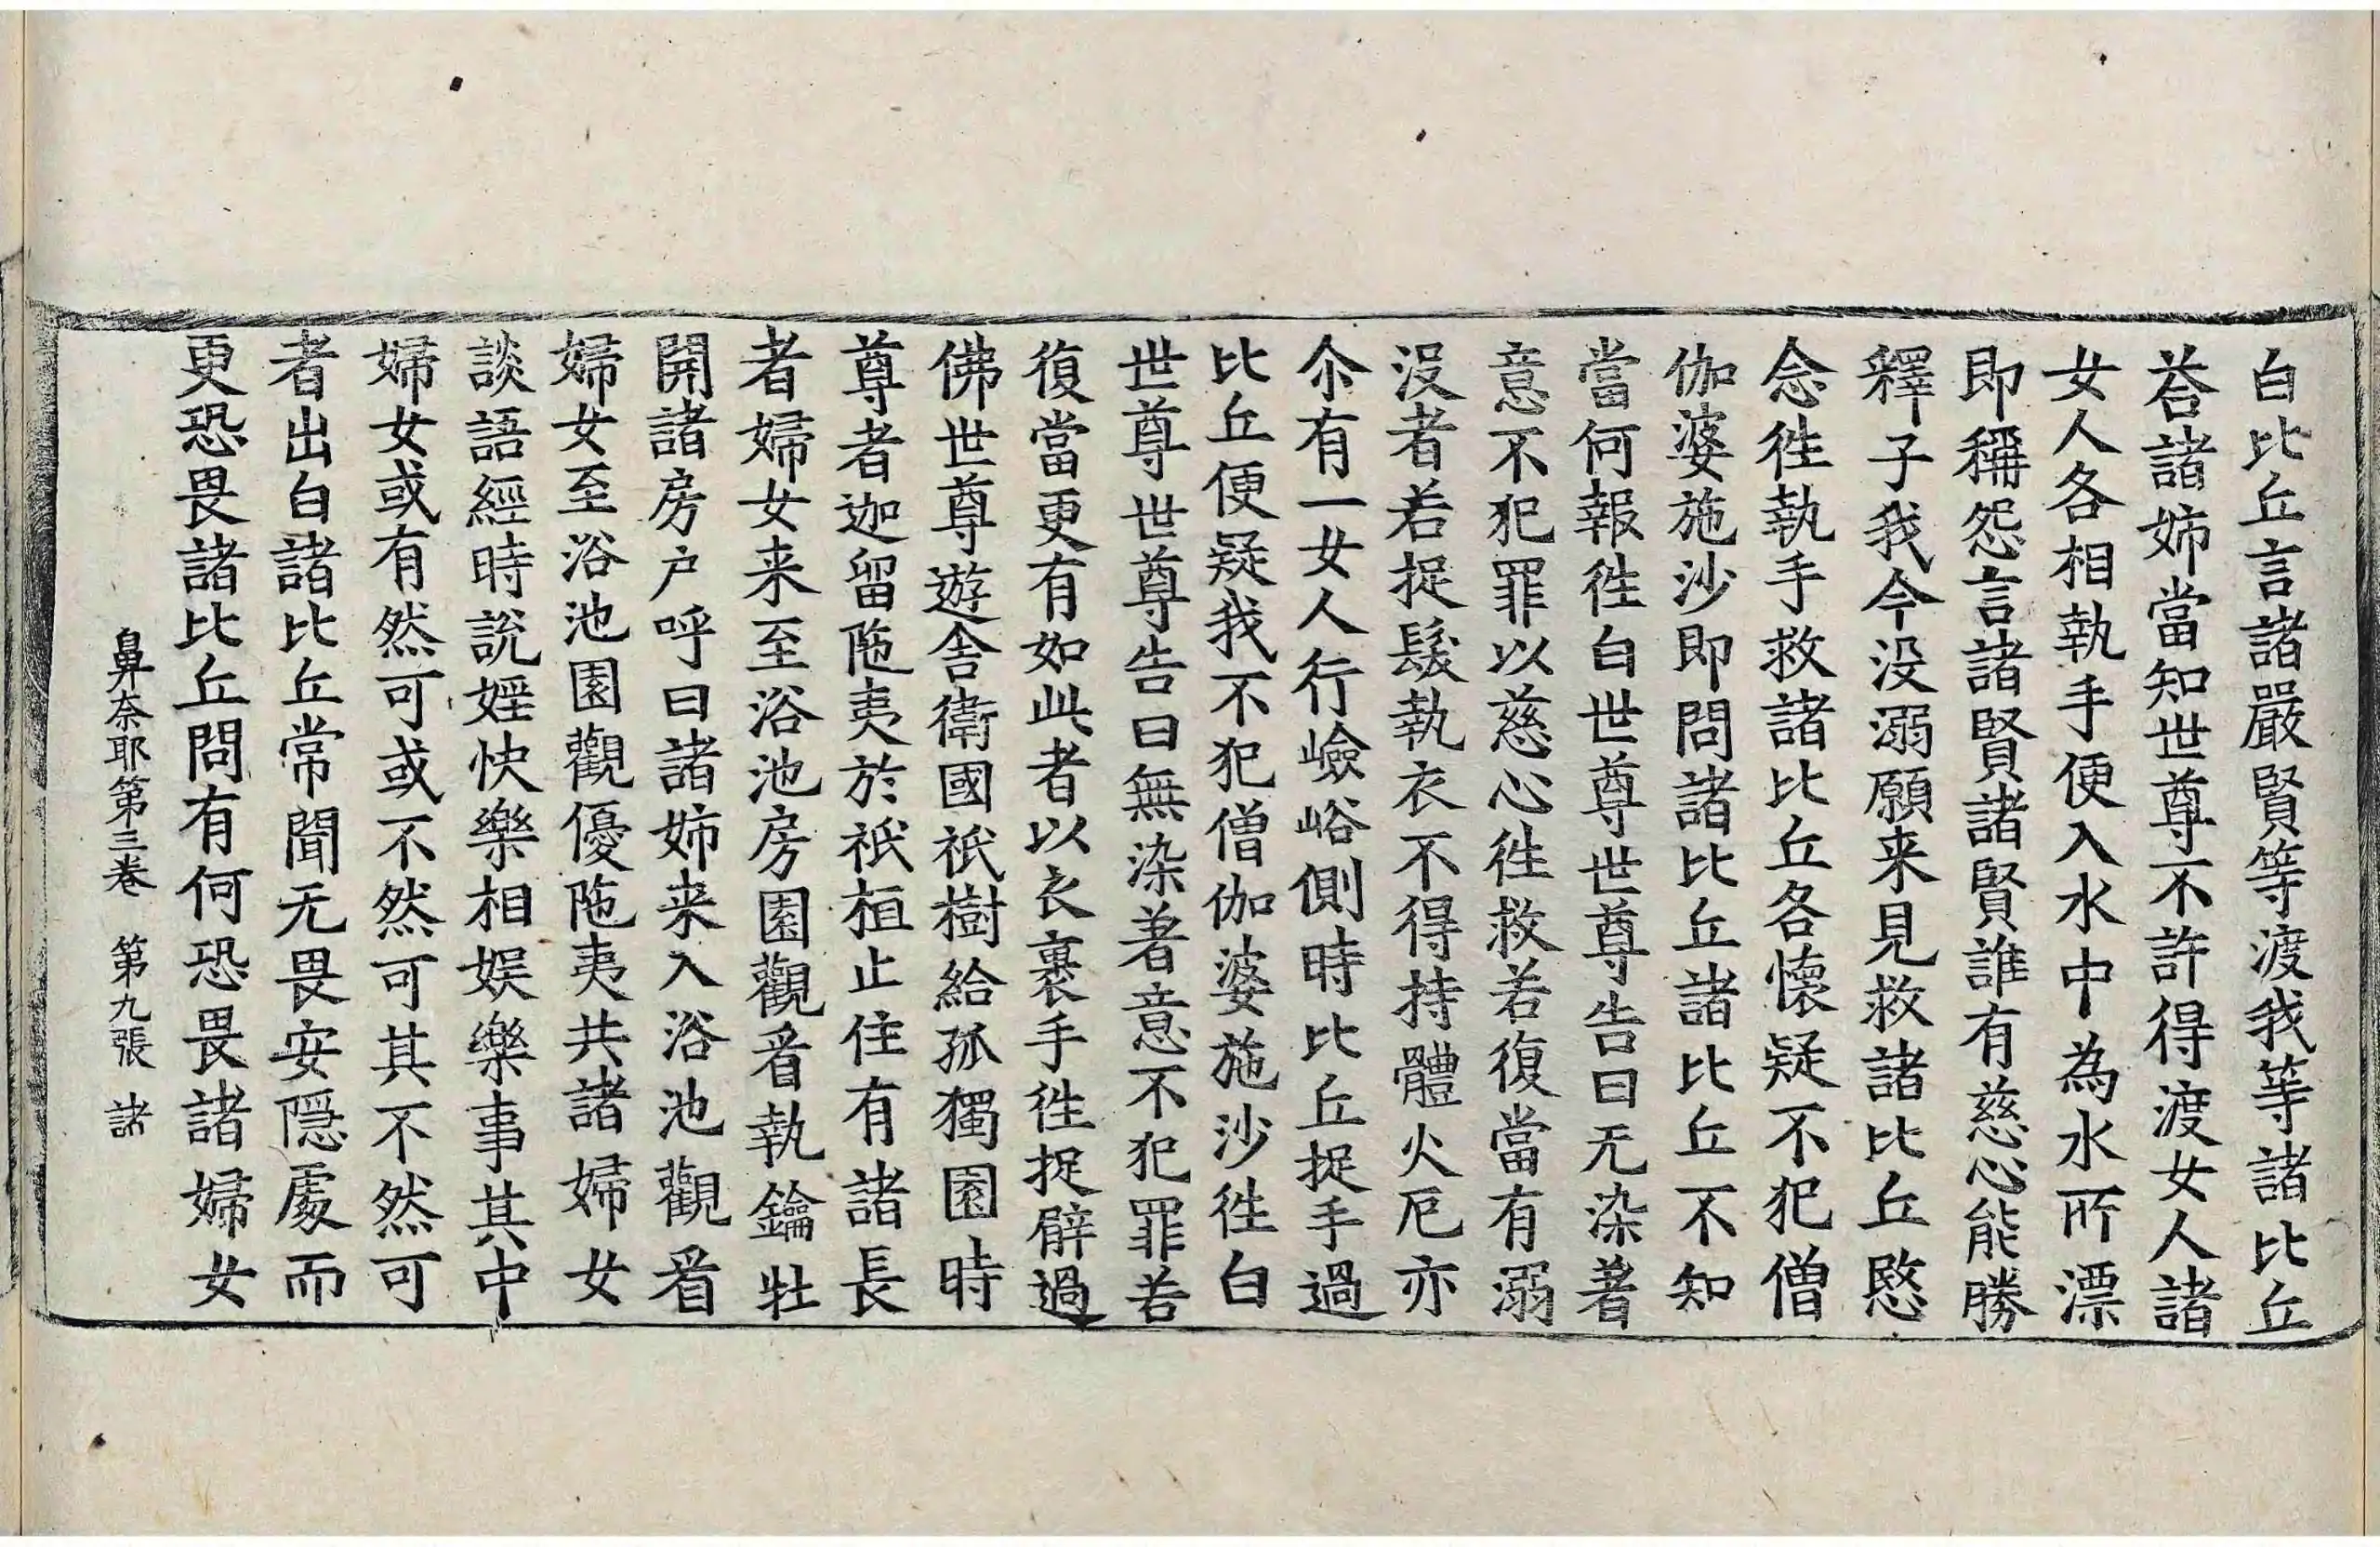 白比丘言諸嚴賢等渡我等諸比丘
荅諸姉當知世尊不許得渡女人諸
女人各相執手便入水中為水所漂
即稱怨言諸賢諸賢誰有慈心能勝
釋子我今没溺願来見救諸比丘愍
念徃執手救諸比丘各懷疑不犯僧
伽婆施沙即問諸比丘諸比丘不知
當何報徃白世尊世尊告曰无染著
意不犯罪以慈心徃救若復當有溺
没者若捉髮執衣不得持體火厄亦
尒有一女人行嶮峪側時比丘捉手過
比丘便疑我不犯僧伽婆施沙徃白
世尊世尊告曰無染著意不犯罪若
復當更有如此者以衣裹手徃捉臂過
佛世尊遊舍衛國祇樹給孤獨園時
尊者迦留陁夷於祇桓止住有諸長
者婦女来至浴池房園觀看執鑰牡
開諸房户呼曰諸姉来入浴池觀看
婦女至浴池園觀優陁夷共諸婦女
談語經時説婬快樂相娱樂事其中
婦女或有然可或不然可其不然可
者出白諸比丘常聞无畏安隱處而
更恐畏諸比丘問有何恐畏諸婦女
鼻奈耶第三卷 第九張 諸